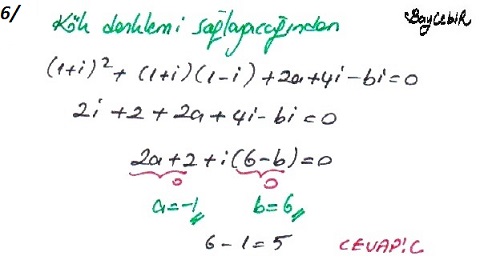 6/ Kök denklemi sağlayacağından BayCebir
(1+i)² + (1+i)(1-i) + 2a+4i-bi=0
2i+2+2a+4i-bi=0
2a+2+i(6-b)=0
0 0
a=-1 b=6
6-1=5 CEVAP:C